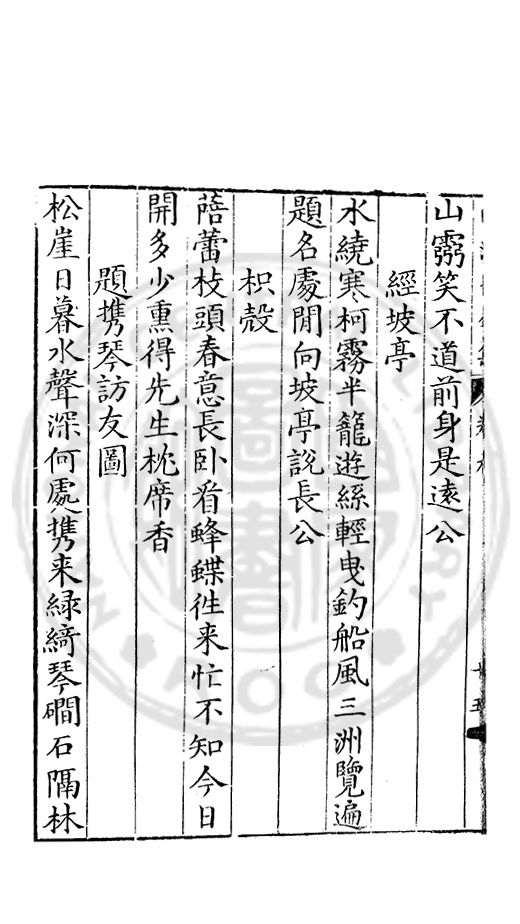 山靈笑不道前身是遠公
經坡亭
水繞寒柯霧半籠遊絲輕曳釣船風三洲覽遍
題名處閒向坡亭說長公
枳殼
蓓蕾枝頭春意長卧看蜂蝶徃来忙不知今日
開多少熏得先生枕席香
題携琴訪友圖
松崖日暮水聲深何處携来緑綺琴磵石隔林